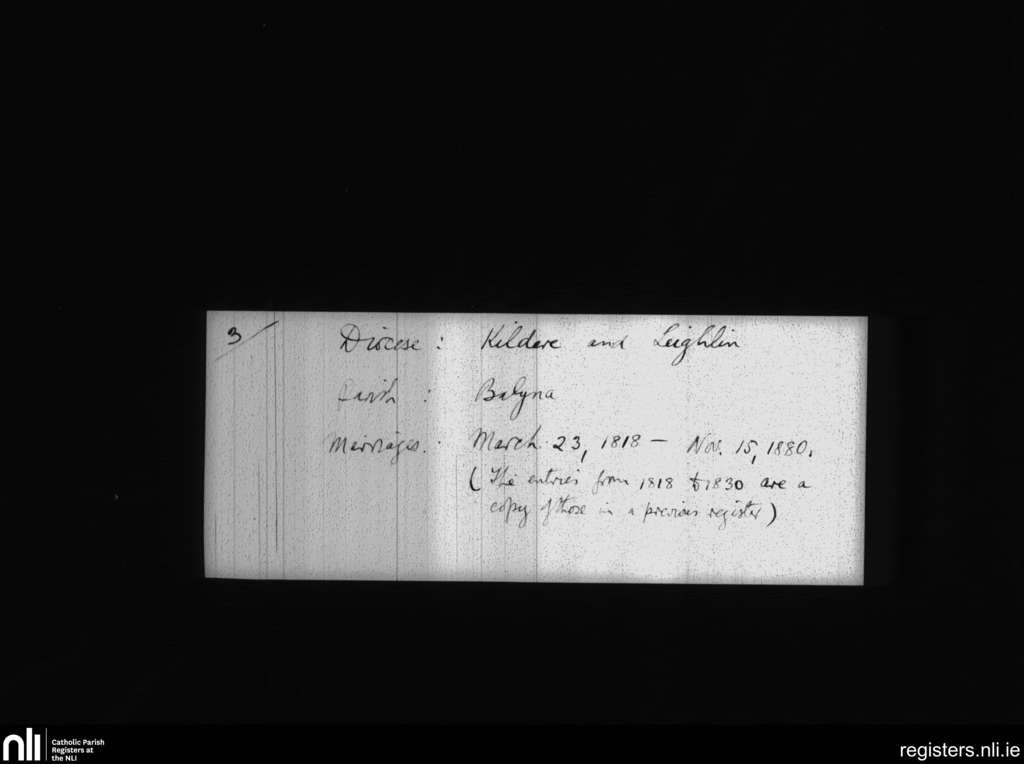 3/
Diocese : Kildare and Leighlin
Parish : Balyna
Marriages : March 23, 1818 – Nov. 15, 1880.
(The entries from 1818 to 1830 are a
copy of those in a previous register)
nli
Catholic Parish
Registers at
the NLI
registers.nli.ie